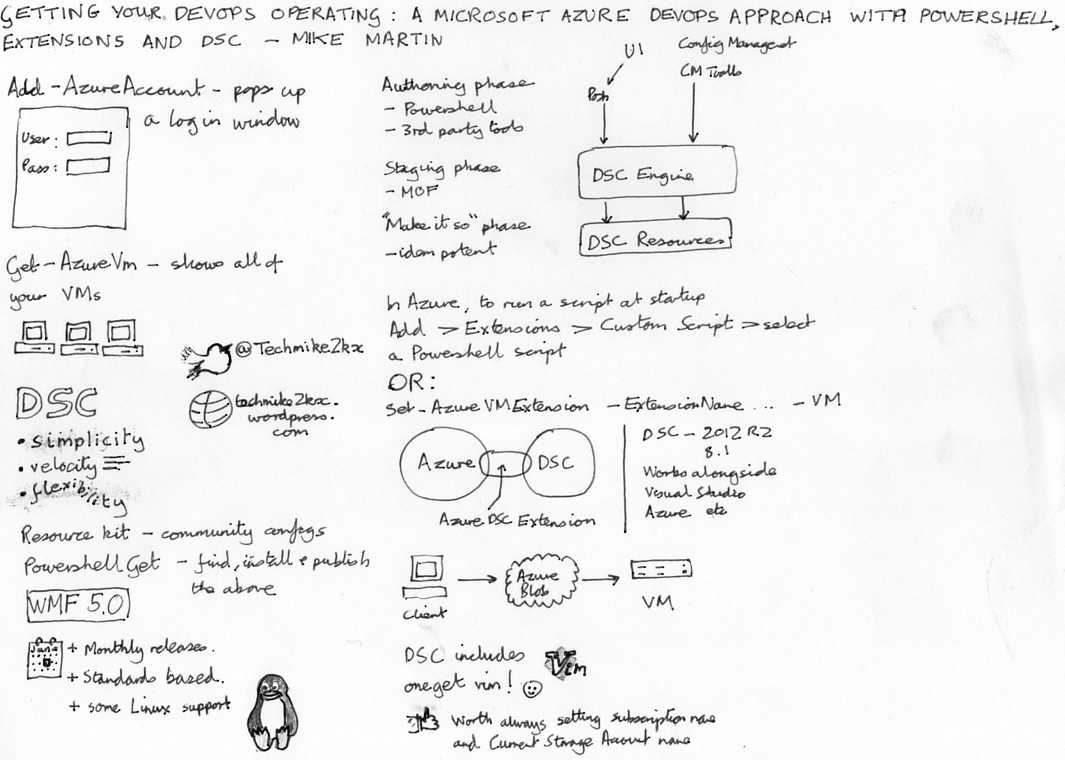 GETTING YOUR DEVOPS OPERATING: A MICROSOFT AZURE DEVOPS APPROACH WITH POWERSHELL,
EXTENSIONS AND DSC – MIKE MARTIN
Add-AzureAccount - pops up
a log in window
User:
Pass:
Get-AzureVm – shows all of
your VMs
@Techmike2kx
techmike2kx.
wordpress.
com
DSC
• simplicity
• velocity
• flexibility
Resource kit – community configs
Powershell Get – find, install + publish
the above
WMF 5.0
+ Monthly releases.
+ Standards based.
+ some Linux support
Authoring phase
- Powershell
- 3rd party tools
Staging phase
- MOF
"Make it so" phase
- idempotent
UI
Posh
Config Managemet
CM Tools
DSC Engine
DSC Resources
In Azure, to run a script at startup
Add > Extensions > Custom Script > select
a Powershell script
OR:
Set-AzureVMExtension -ExtensionName ... -VM
Azure
DSC
Azure DSC Extension
DSC – 2012 R2
8.1
Works alongside
Visual Studio
Azure etc
client
Azure
Blob
VM
DSC includes
oneget vim!
Vim
Worth always setting subscription name
and Current Storage Account name